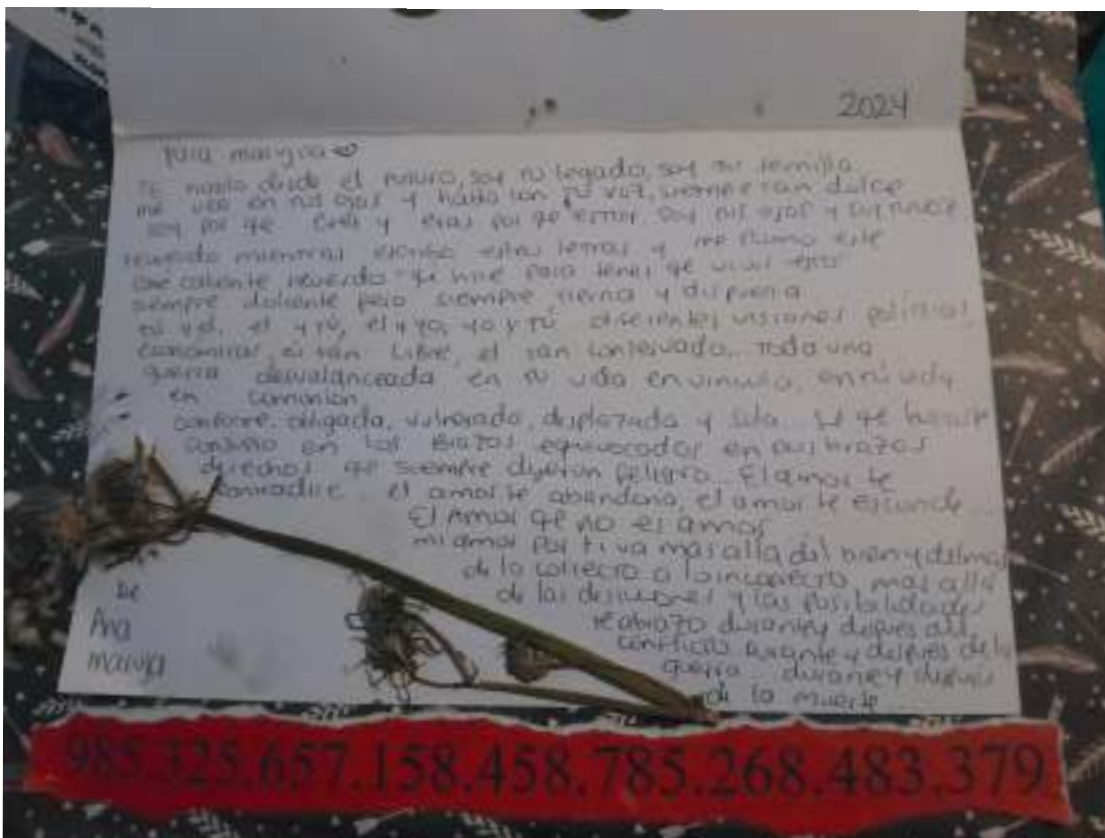 2024
Para maruja
TE hablo desde el futuro, soy tu legado, soy tu semilla
me veo en tus ojos y hablo con tu voz, siempre tan dulce
soy por qe eres y eras por qe estoy soy tus ojos y
recuerdo mientras escribo estas letras y me fumo este
que caliente recuerdo qe hice para tener qe vivir esto
siempre doliente pero siempre tierna y dispuesta
tú y el, el y tú, el y yo, yo y tú diferentes visiones políticas,
economicas, tú tan Libre, el tan conservado... Toda una
guerra desvalanceada en tu vida en vinculo, en tu vida
en comunion
conforme, obligada, vulnerada, desplazada y sola... Sé qe
consuelo en los Brazos equivocados en sus brazos
derechos qe siempre dijeron peligro... El amor te
contradice... el amor te abandona, el amor te esconde...
El Amor qe no es amor
mi amor por ti va mas alla del bien y del mal
de lo correcto o lo incorrecto, mas alla
de las desiciones y las posibilidades
te abrazo durante y despues del
conflicto durante y despues de la
guerra durante y despues
de la muerte
De
Ana
maruja
985.325.657.158.458.785.268.483.379